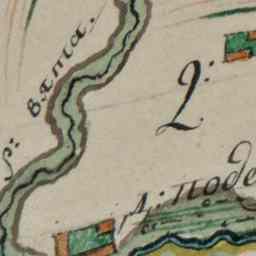 р: вята.
2:
д: поде